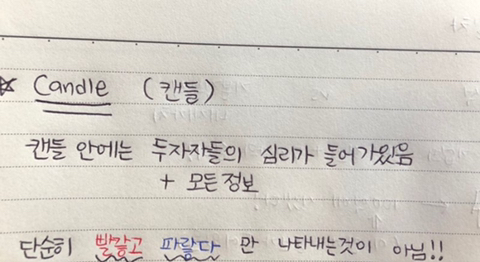 ☆ Candle (캔들)
캔들 안에는 두자자들의 심리가 들어가있음
+ 모든 정보
단순히 빨갛고 파랗다 만 나타내는것이 아님!!